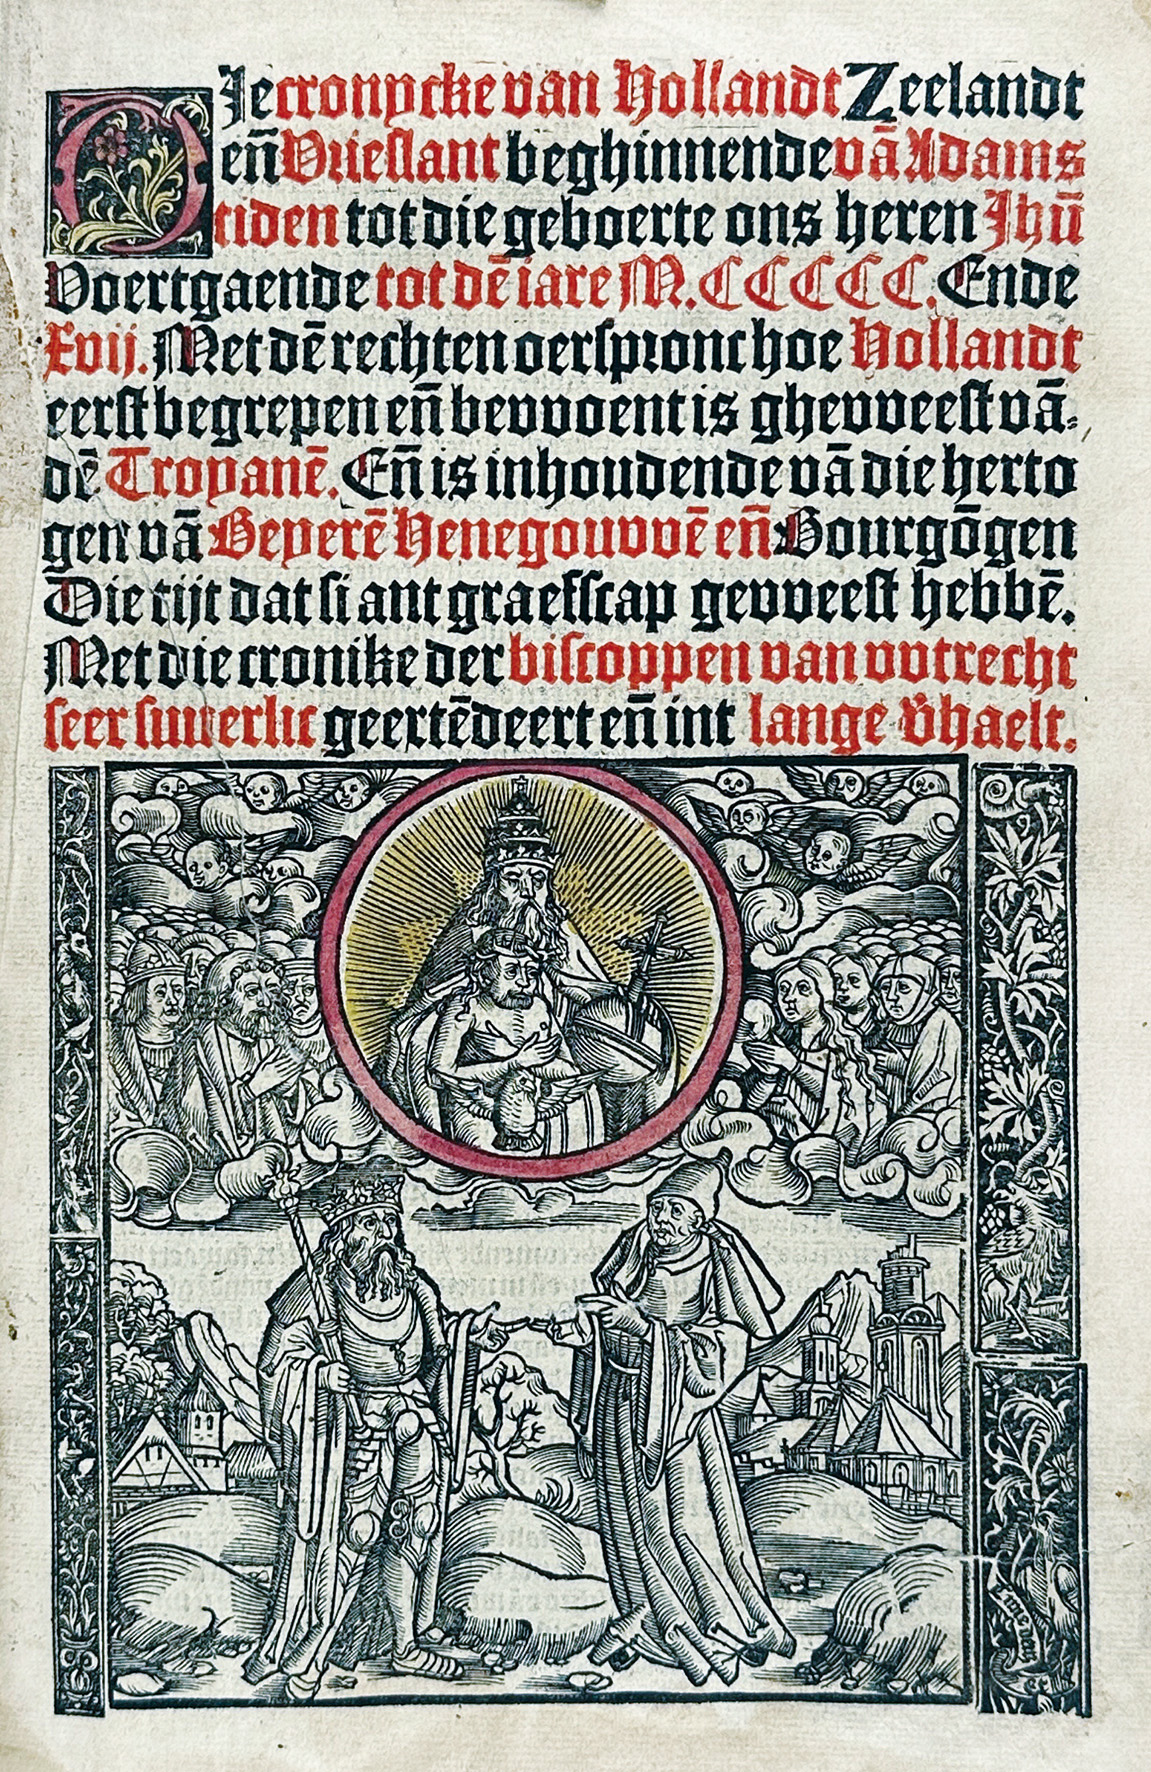 DJe cronycke van Hollandt Zeelandt
eñ Vrieslant beghinnende vā Adams
tiden tot die geboerte ons heren Jhū
Voertgaende tot dē iare M.CCCCC. Ende
Xvij. Met dē rechten oerspronc hoe Hollandt
eerst begrepen eñ bevvoent is ghevveest vā-
dē Troyanē. Eñ is inhoudende vā die herto
gen vā Beyerē Henegouvvē eñ Bourgōgen
Die tijt dat si ant graefscap gevveest hebbē.
Met die cronike der biscoppen van vvtrecht
seer suverlic geextēdeert eñ int lange v̄haelt.